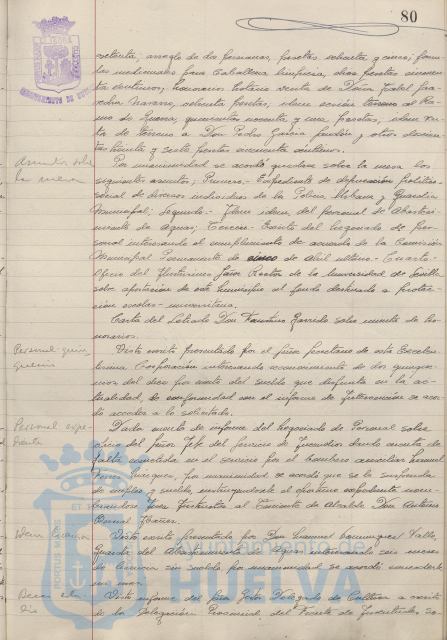 80
setenta; arreglo de dos persianas, pesetas sesenta y cinco; fórmulas
medicinales para Caballería limpieza, diez pesetas cincuenta
céntimos; honorarios notario venta de Doña Isabel
Navarro, ochenta pesetas; idem cesión terreno al Ramo
de Guerra, quinientas noventa y una pesetas, idem venta
de terreno a Don Pedro García y otros
pesetas cincuenta céntimos.
Asuntos sobre
la mesa
Por unanimidad se acordó quedasen sobre la mesa los
siguientes asuntos; Primero.- Expediente de depuración político-
social de diversos individuos de la Policía Urbana y Guardia
Municipal; Segundo.- Idem idem del personal de Abastecimiento
de Aguas; Tercero.- Escrito del Negociado de Personal
interesando el cumplimiento de acuerdo de la Comisión
Municipal Permanente de cinco de Abril último.- Cuarto.-
Oficio del Ilustrísimo Señor Rector de la Universidad de Sevilla
sobre aportación de este Municipio al fondo destinado a protección
escolar universitaria.
Carta del Letrado Don Faustino Garrido sobre minuta de honorarios.
Personal quinquenios
Visto escrito presentado por el Señor Secretario de esta Excelentísima
Corporación interesando reconocimiento de dos quinquenios
del diez por ciento del sueldo que disfruta en la actualidad,
de conformidad con el informe de Intervención se acordó
acceder a lo solicitado.
Personal expediente
Dada cuenta de informe del Negociado de Personal sobre
oficio del Señor Jefe del Servicio de Incendios dando cuenta de
falta cometida en el servicio por el bombero auxiliar Manuel
por unanimidad se acordó que se le suspenda
de empleo y sueldo, instruyéndosele el oportuno expediente nombrándose
Juez Instructor al Teniente de Alcalde Don Antonio
Bernal Ibáñez.
Idem licencia
Visto escrito presentado por Don Manuel Domínguez Valle,
Guarda del Abastecimiento de Aguas interesando seis meses
de licencia sin sueldo por unanimidad se acordó concederle
un mes.
Visto informe del Señor Gestor Delegado de Cultura a escrito
de la Delegación Provincial del Frente de Juventudes so-
Ayuntamiento de
HUELVA